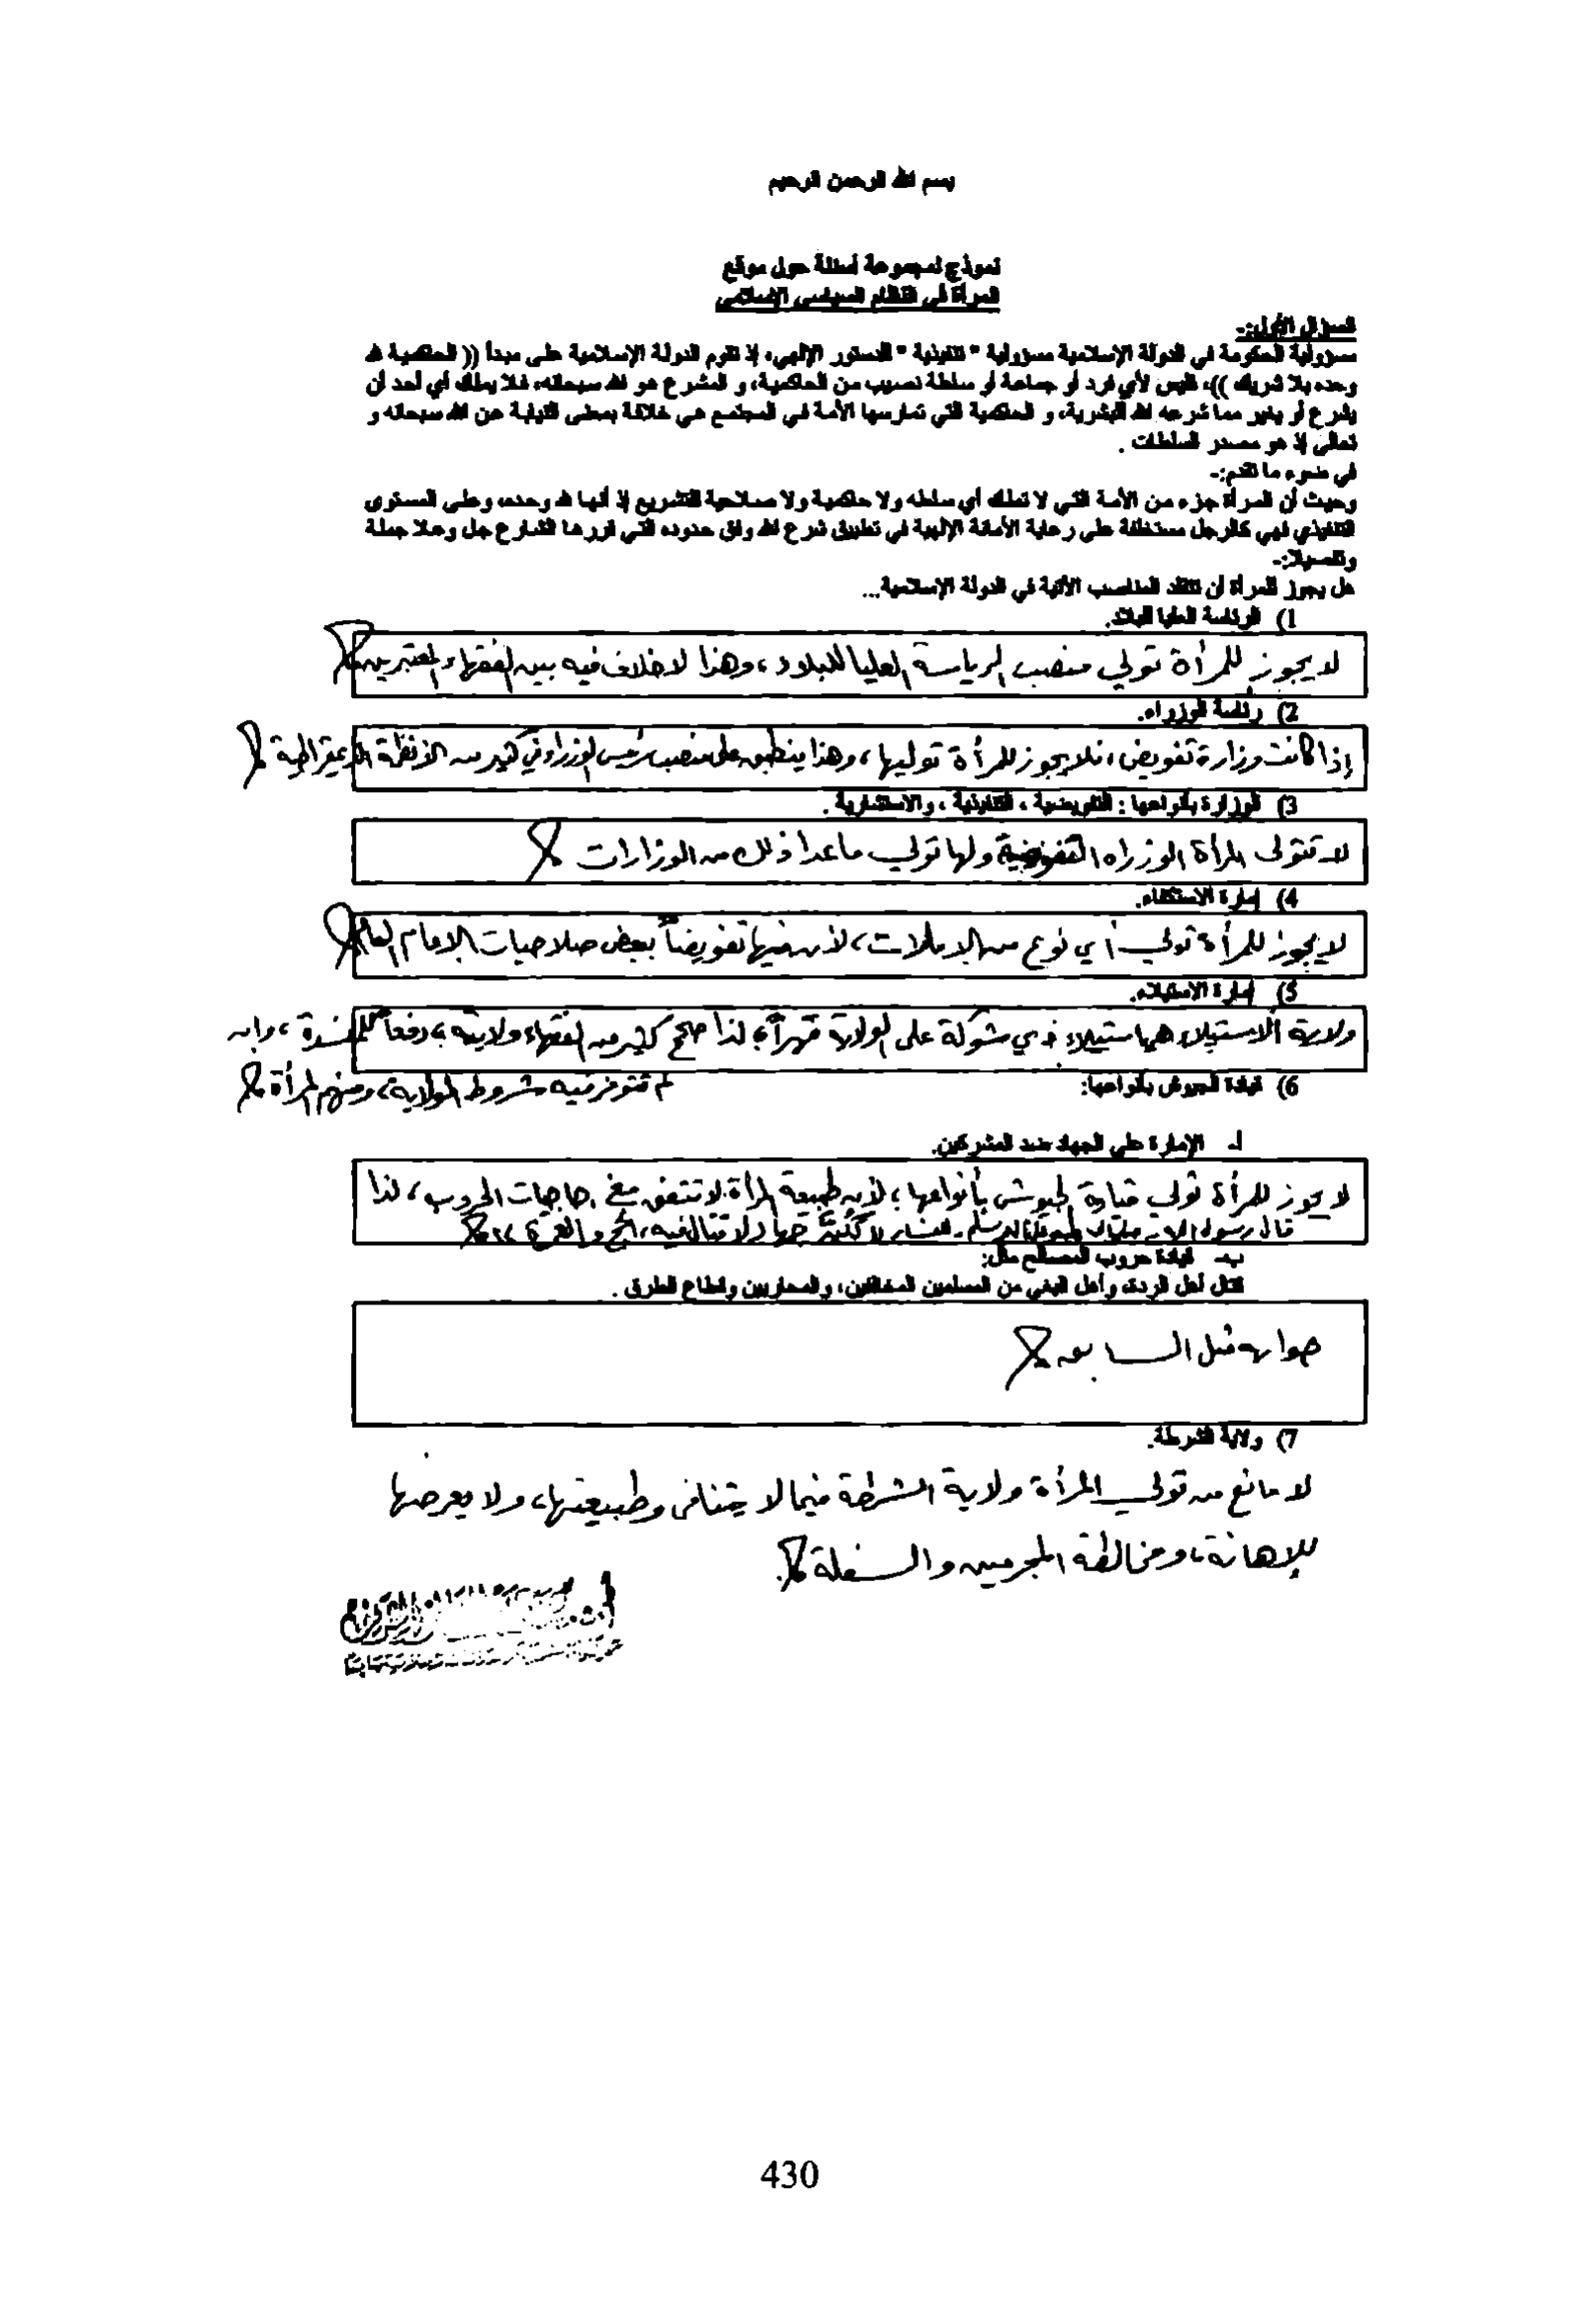 بسم الله الرحمن الرحيم
نموذج لمجموعة أسئلة حول موقع
المرأة في النظام السياسي الإسلامي
السؤال الأول:-
مسؤولية الحكومة في الدولة الإسلامية مسؤولية " تنفيذية " للدستور الإلهي، إذ تقوم الدولة الإسلامية على مبدأ (( الحاكمية لله
وحده بلا شريك ))، فليس لأي فرد أو جماعة أو سلطة نصيب من الحاكمية، و المشرع هو الله سبحانه، فلا يملك أي أحد أن
يشرع أو يغير مما شرعه الله للبشرية، و الحاكمية التي تمارسها الأمة في المجتمع هي خلافة بمعنى النيابة عن الله سبحانه و
تعالى إذ هو مصدر السلطات .
في ضوء ما تقدم:-
وحيث أن المرأة جزء من الأمة التي لا تملك أي سلطه ولا حاكمية ولا صلاحية للتشريع إذ أنها لله وحده، وعلى المستوى
التنفيذي فهي كالرجل مستخلفة على رعاية الأمانة الإلهية في تطبيق شرع الله وفق حدوده التي قررها الشارع جل وعلا جملة
وتفصيلا:-
هل يجوز للمرأة أن تتقلد المناصب الآتية في الدولة الإسلامية...
1) الرئاسة العليا للبلاد.
لا يجوز للمرأة تولي منصب الرياسة العليا للبلاد، وهذا لا خلاف فيه بين الفقهاء المعتبرين
2) رئاسة الوزراء.
إذا كانت وزارة تفويض، فلا يجوز للمرأة توليها، وهذا ينطبق على منصب رئيس الوزراء في كثير من الأنظمة الديمقراطية
3) الوزارة بأنواعها : التفويضية ، التنفيذية ، والاستشارية .
لا تتولى المرأة الوزارة التفويضية ولها تولي ما عدا ذلك من الوزارات
4) إمارة الاستكفاء.
لا يجوز للمرأة تولي أي نوع من الإمارات، لأن فيها تفويضاً ببعض صلاحيات الإمام العام
5) إمارة الاستيلاء.
ولاية الاستيلاء هي استيلاء ذي شوكة على الولاية قهراً، لذا صحح كثير من الفقهاء ولايته، دفعاً للمفسدة، وإن
لم تتوفر فيه شروط الولاية، ومنهم المرأة
6) قيادة الجيوش بأنواعها:
أ- الإمارة على الجهاد ضد المشركين.
لا يجوز للمرأة تولي قيادة الجيوش بأنواعها، لأن طبيعة المرأة لا تتفق مع حاجات الحروب، لذا
قال رسول الله صلى الله عليه وسلم - للنساء جهاد لا قتال فيه، الحج والعمرة
ب- قيادة حروب المصالح مثل:
قتال أهل الردة، وأهل البغي من المسلمين المخالفين، والمحاربين وقطاع الطرق .
جوابه مثل السابق
7) ولاية الشرطة.
لا مانع من تولي المرأة ولاية الشرطة فيما لا يتنافى وطبيعتها، ولا يعرضها
للإهانة، ومخالطة المجرمين والسفلة.
430